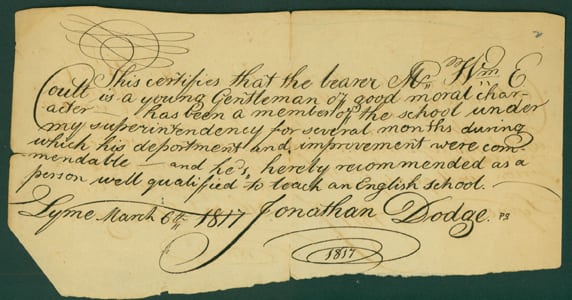 This certifies that the bearer Mr. Wm. E
Coult is a young Gentleman of good moral char-
acter — has been a member of the school under
my superintendency for several months during
which his deportment and improvement were com-
mendable — and he's, hereby recommended as a
person well qualified to teach an English school. —
Lyme March 6th, 1817 Jonathan Dodge. PS
1817